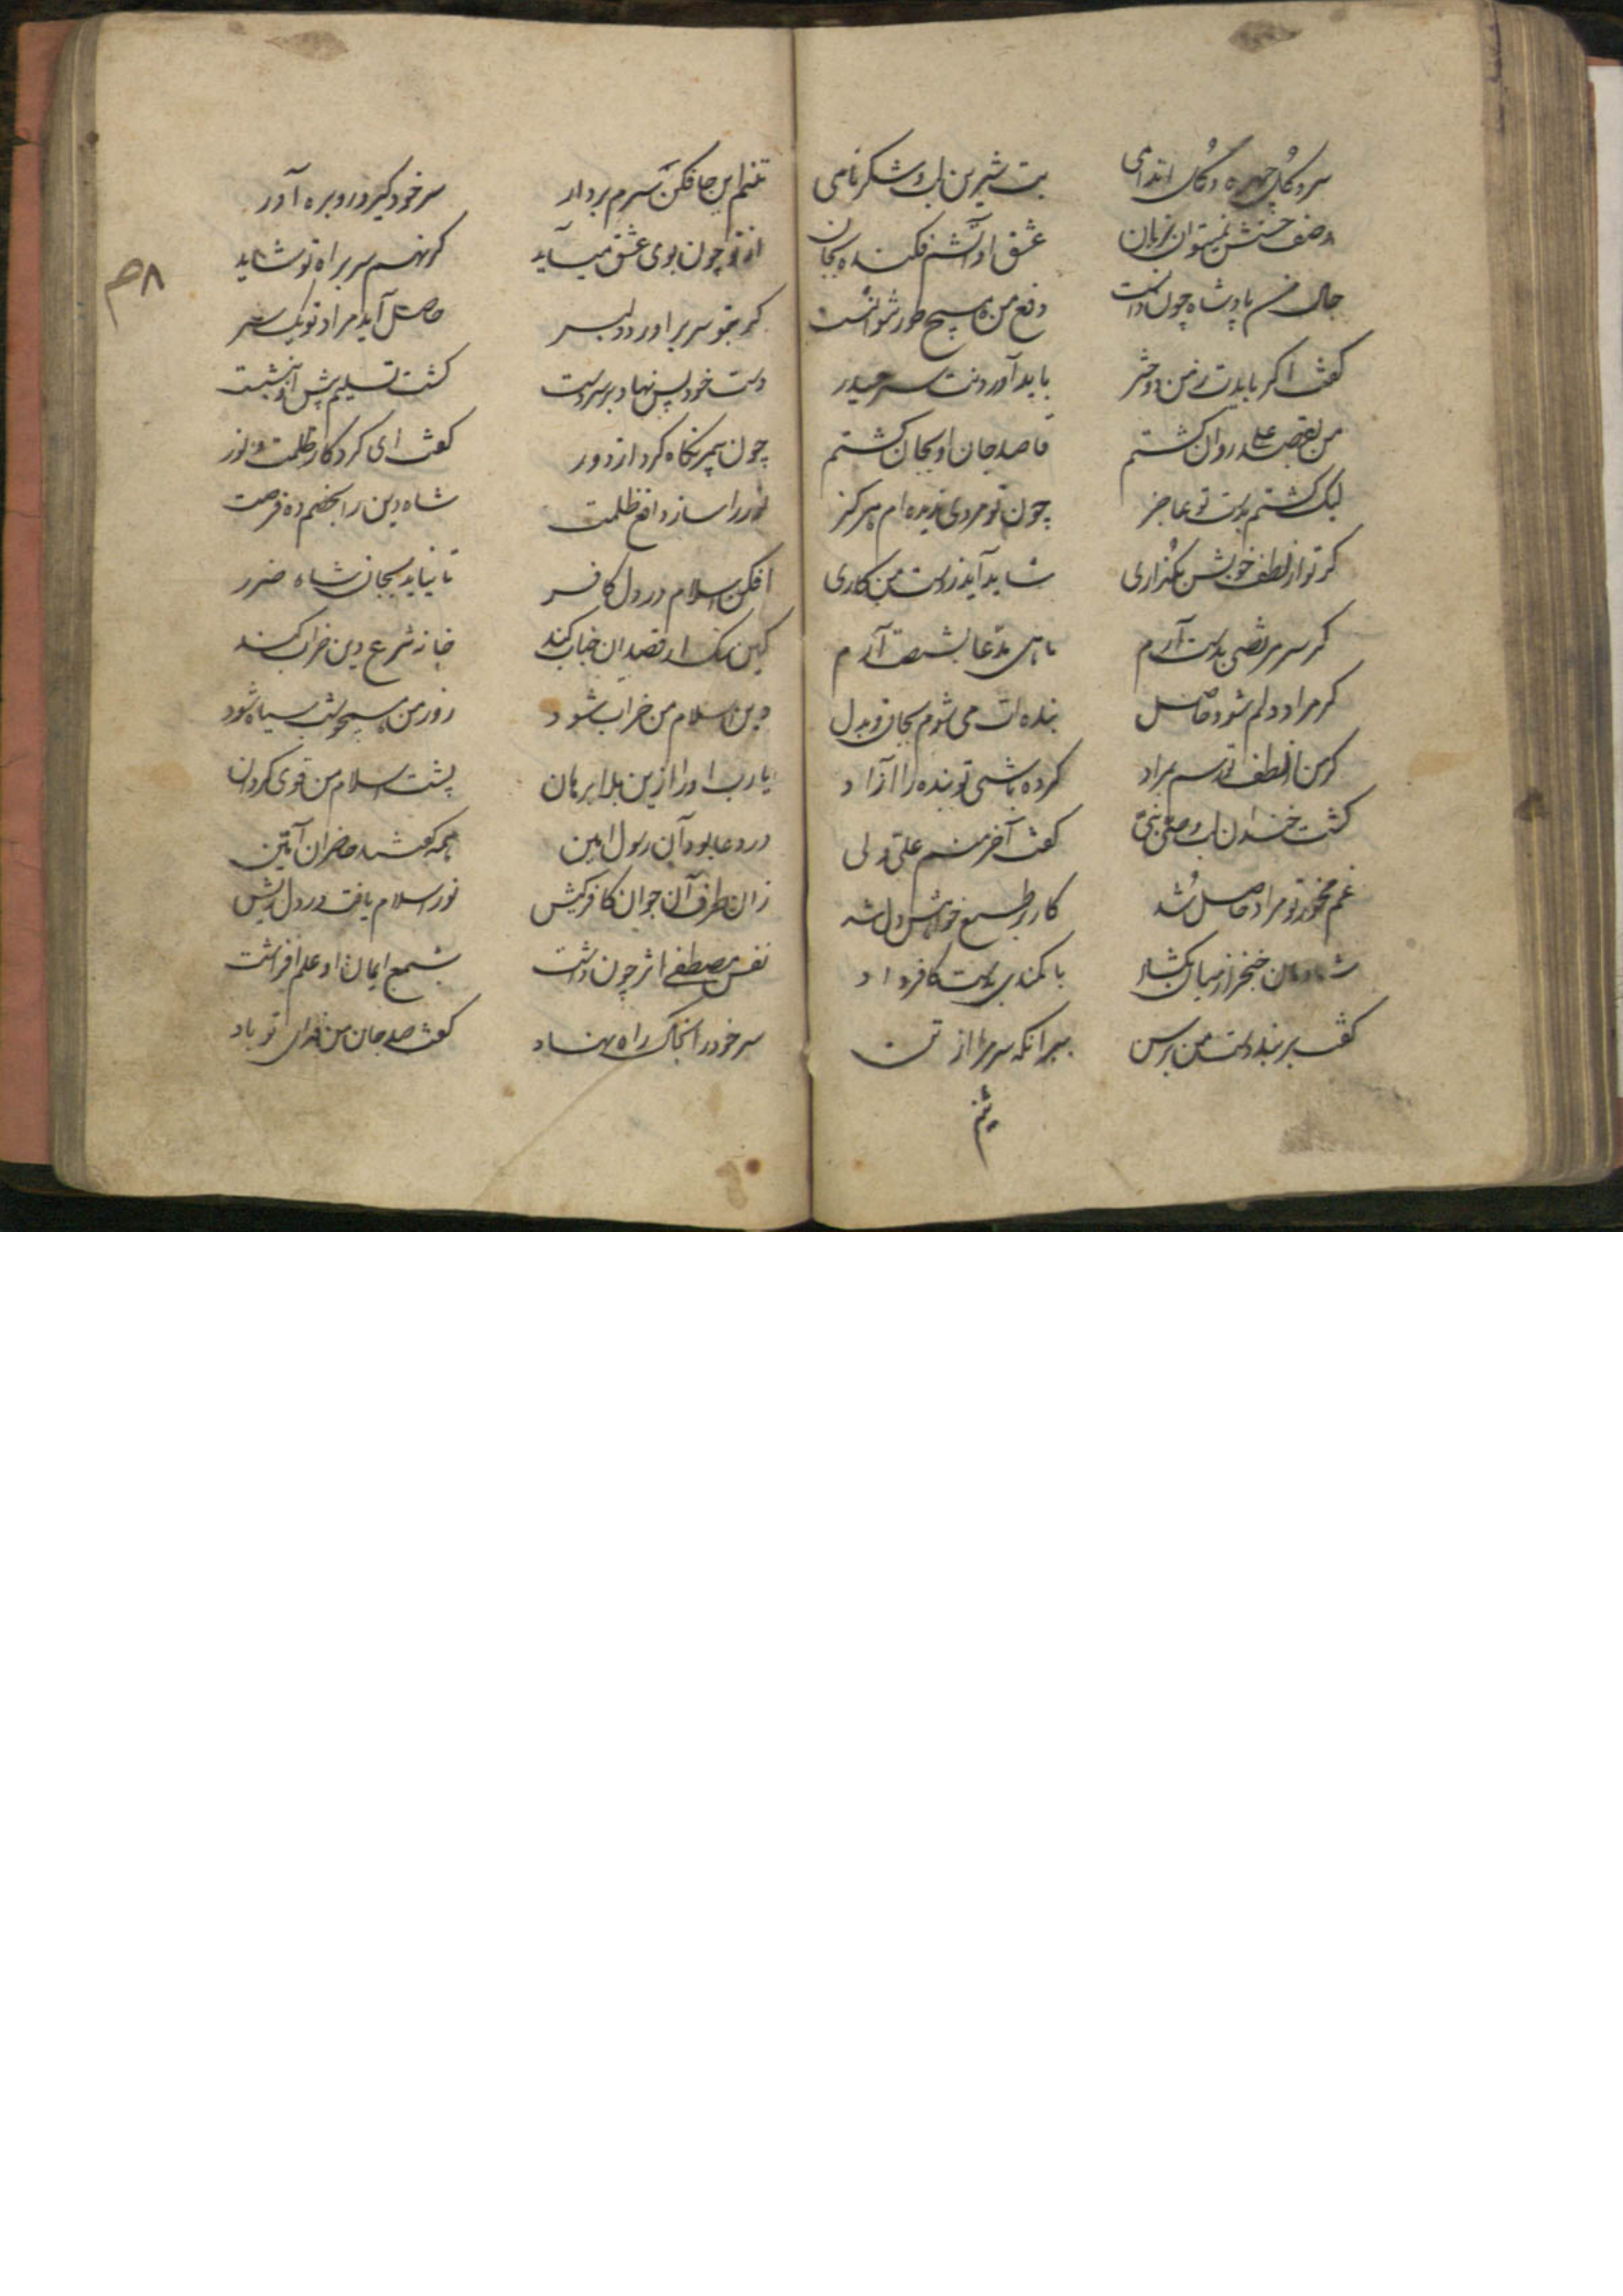 سرو گل چهره و گل اندامی بت شیرین لب و شکر نامی
وصف حسنش نمیتوان بزبان عشق او آتشم فکنده بجان
حال من پادشاه چون دانست دفع من هیچ طور نتوانست
کفت اکر بایدت ز من دختر باید آوردنت سر حیدر
من بقصد علی روان کشتم قاصد جان او بجان کشتم
لیک کشتم بدست تو عاجز چون تو مردی ندیده ام هرکز
کر تو از لطف خویش بکذاری شاید آید ز دست من کاری
کر سر مرتضی بدست آرم ماهی مدعا بشست آرم
کر مراد دلم شود حاصل بنده ات می شوم بجان و بدل
کر من از لطف تو رسم بمراد کرده باشی تو بنده را آزاد
کشت خندان لب وصی نبی کفت آخر منم علی ولی
غم مخور تو مراد حاصل شد کار بر طبع خواهش دل شد
شادمان خنجر از میان بکشاد با کمندی بدست کافر داد
کفت بربند دست من برسن ببر آنکه سر مرا از تن
تنم
تنم این جا فکن سرم بردار سر خود کیر و رو بره آور
از تو چون بوی عشق میآید کر نهم سر براه تو شاید
کر بتو سر برآورد دلبر حاصل آید مراد تو یکسر
دست خود پس نهاد بر سر دست کشت تسلیم پیش او بنشست
چون پیمبر نکاه کرد از دور کفت ای کردکار ظلمت و نور
نور را ساز دافع ظلمت شاه دین را بخصم ده فرصت
افکن اسلام در دل کافر تا نیاید بجان شاه ضرر
کین سک ار قصد آن جناب کند خانه شرع دین خراب کند
دین اسلام من خراب شود روز من همچو شب سیاه شود
یا رب او را ازین بلا برهان پشت اسلام من قوی کردان
در دعا بود آن رسول امین همه کفتند حاضران آمین
زان طرف آن جوان کافر کیش نور اسلام یافت در دل ریش
نفس مصطفی اثر چون داشت شمع ایمان او علم افراشت
سر خود را بخاک راه نهاد کفت صد جان من فدای تو باد